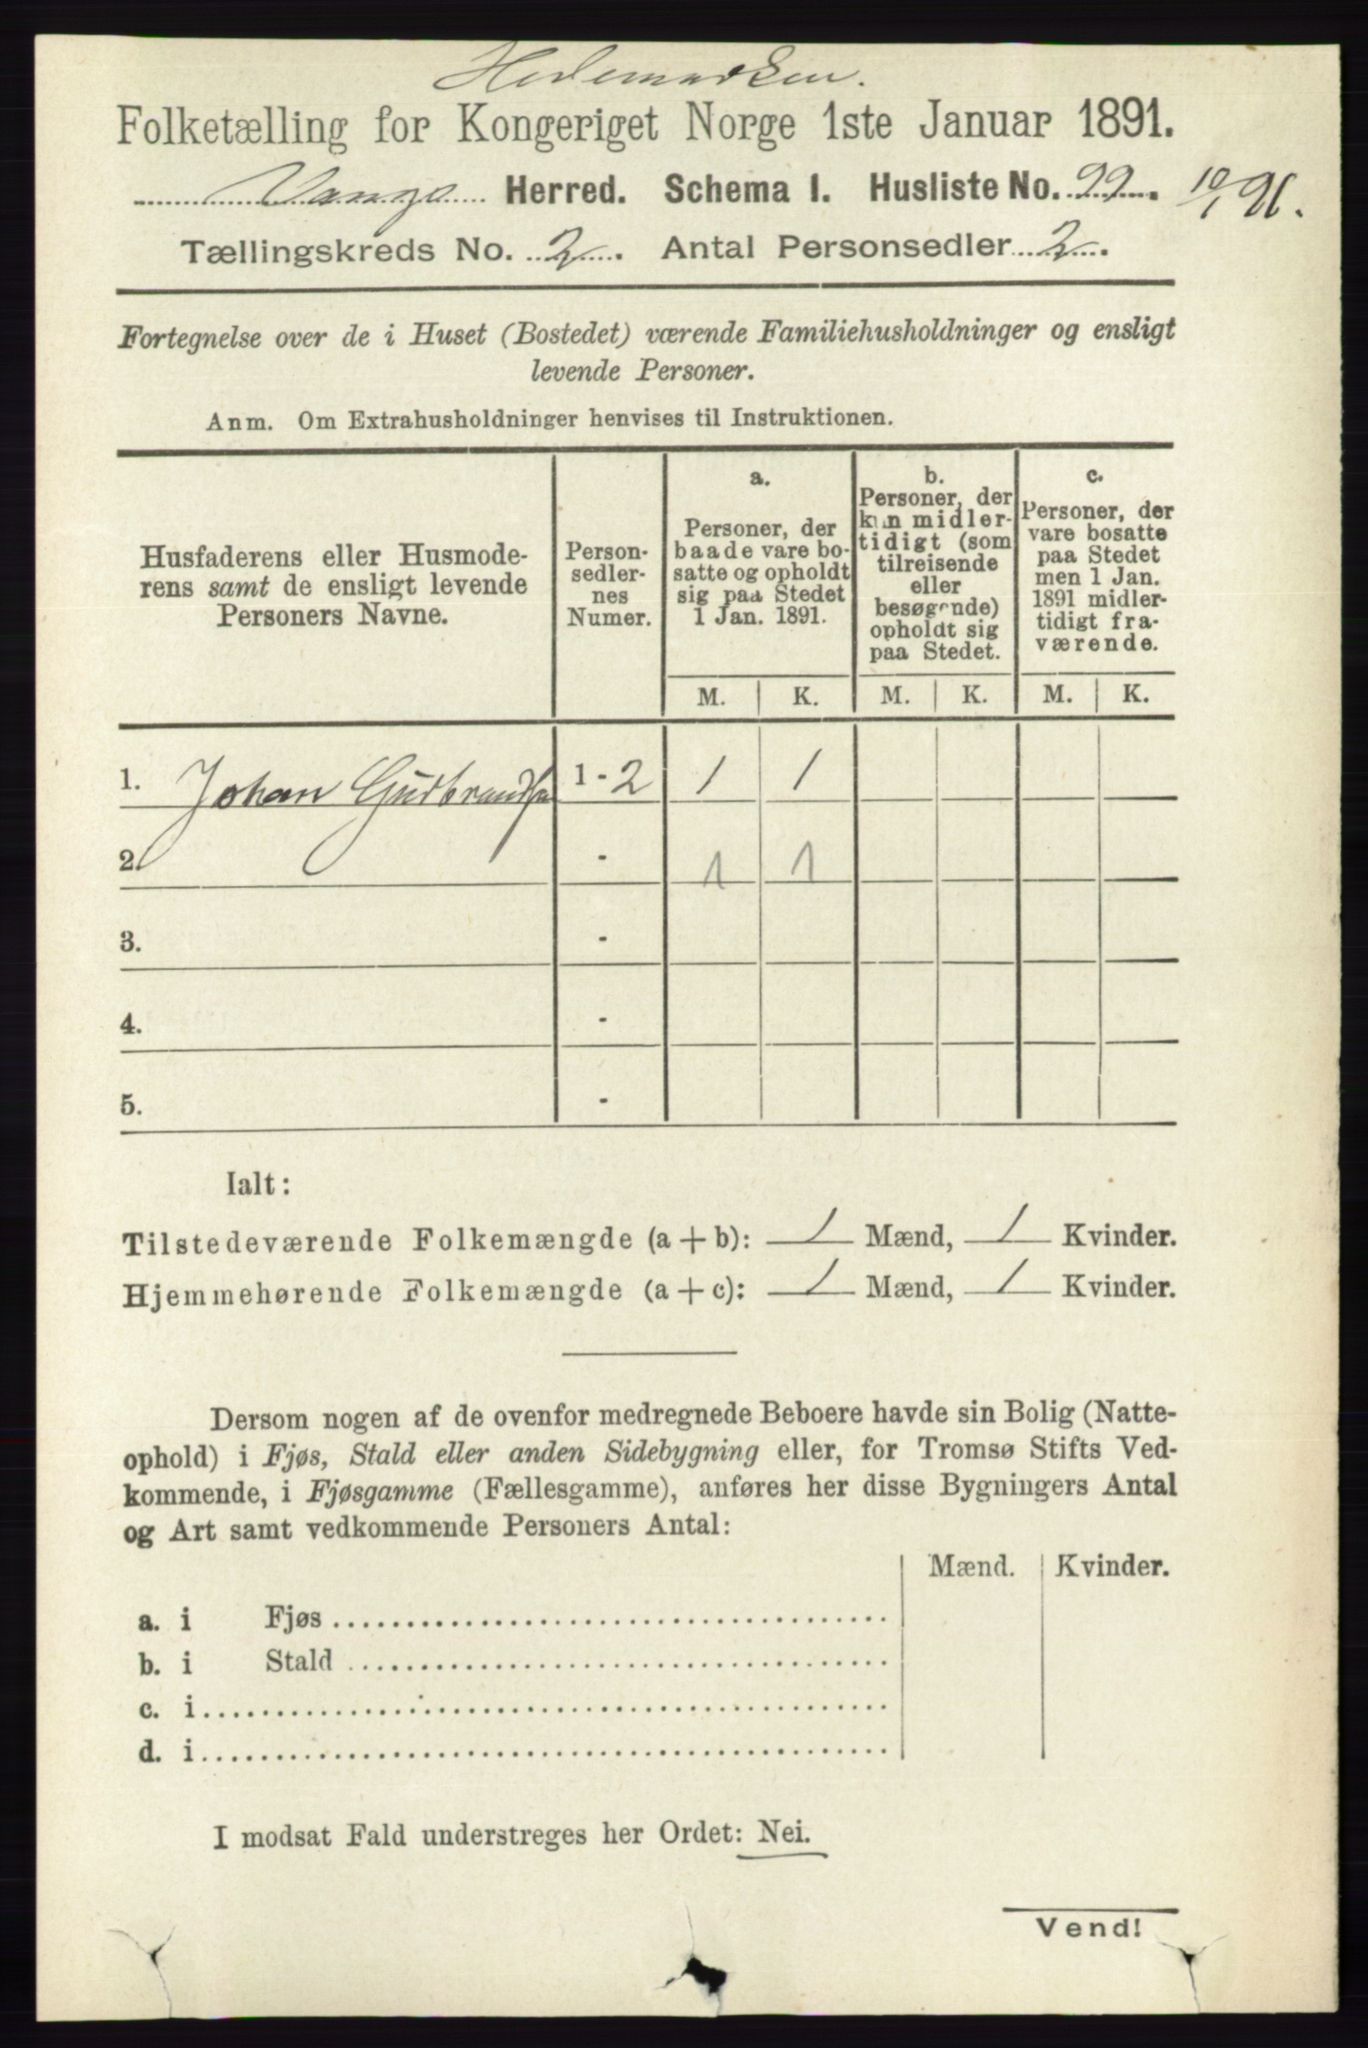 Hedemarken.
Folketælling for Kongeriget Norge 1ste Januar 1891.
Vangs Herred. Schema 1. Husliste No. 99. 10/1 91.
Tællingskreds No. 2. Antal Personsedler 2.
Fortegnelse over de i Huset (Bostedet) værende Familiehusholdninger og ensligt
levende Personer.
Anm. Om Extrahusholdninger henvises til Instruktionen.
Husfaderens eller Husmode-
rens samt de ensligt levende
Personers Navne.
Person-
sedler-
nes
Numer.
a.
Personer, der
baade vare bo-
satte og opholdt
sig paa Stedet
1 Jan. 1891.
b.
Personer, der
kun midler-
tidigt (som
tilreisende
eller
besøgende)
opholdt sig
paa Stedet.
c.
Personer, der
vare bosatte
paa Stedet
men 1 Jan.
1891 midler-
tidigt fra-
værende.
M. K. M. K. M. K.
1. Johan Gudbrandsen 1 - 2 1 1
2. - 1 1
3. -
4. -
5. -
Ialt:
Tilstedeværende Folkemængde (a + b): 1 Mænd, 1 Kvinder.
Hjemmehørende Folkemængde (a + c): 1 Mænd, 1 Kvinder.
Dersom nogen af de ovenfor medregnede Beboere havde sin Bolig (Natte-
ophold) i Fjøs, Stald eller anden Sidebygning eller, for Tromsø Stifts Ved-
kommende, i Fjøsgamme (Fællesgamme), anføres her disse Bygningers Antal
og Art samt vedkommende Personers Antal:
Mænd. Kvinder.
a. i Fjøs
b. i Stald
c. i
d. i
I modsat Fald understreges her Ordet: Nei.
Vend!